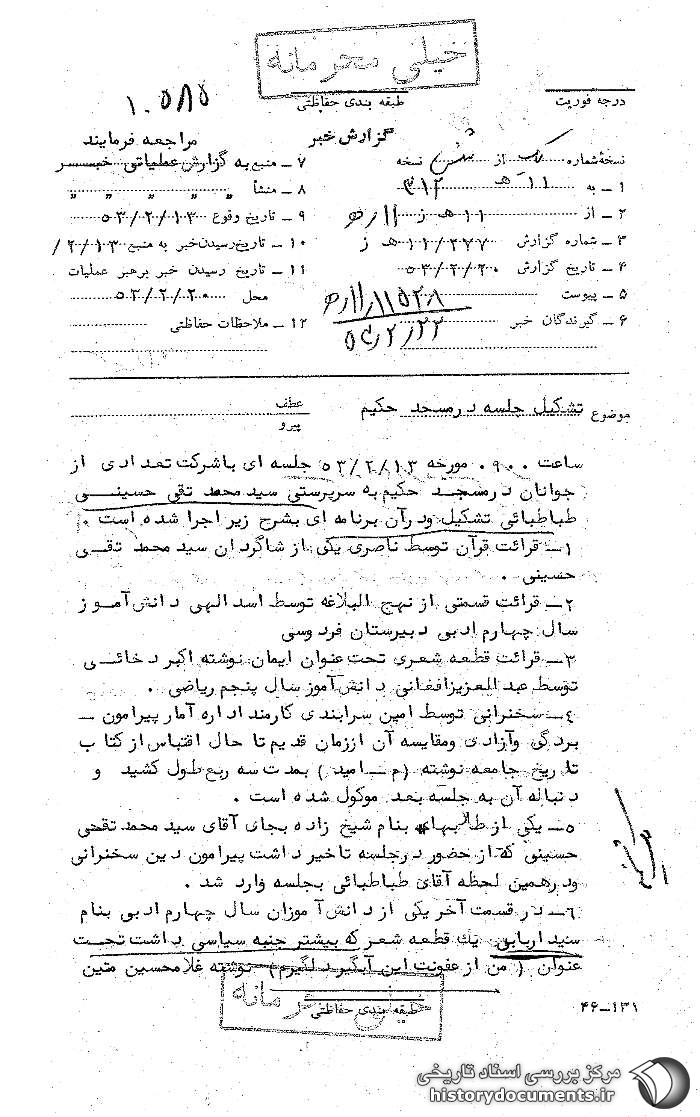 خیلی محرمانه
۱۰۵۸۵
درجه فوریت
طبقه بندی حفاظتی
گزارش خبر
مراجعه فرمایند
نسخهٔ شماره یک از شش نسخه
۱ـ به ۳۱۲
۲ـ از ۱۱ هـ ز
۳ـ شماره گزارش ۱۱/۲۷۷ هـ ز
۴ـ تاریخ گزارش ۵۳/۲/۲۰
۵ـ پیوست
۶ـ گیرندگان خبر
۷ـ منبع به گزارش عملیاتی خبر
۸ـ منشأ " " " "
۹ـ تاریخ وقوع ۵۳/۲/۱۳
۱۰ـ تاریخ رسیدن خبر به منبع ۲/۱۳/
۱۱ـ تاریخ رسیدن خبر برهبر عملیات
محل ۵۳/۲/۲۰
۱۲ـ ملاحظات حفاظتی
۵۳/۲/۲۲
موضوع تشکیل جلسه درمسجد حکیم
عطف
پیرو
ساعت ۹۰۰ مورخه ۵۳/۲/۱۳ جلسه ای باشرکت تعدادی از
جوانان درمسجد حکیم به سرپرستی سید محمد تقی حسینی
طباطبائی تشکیل ودرآن برنامه ای بشرح زیر اجرا شده است .
۱ـ قرائت قرآن توسط ناصری یکی از شاگردان سید محمد تقی
حسینی .
۲ـ قرائت قسمتی از نهج البلاغه توسط اسدالهی دانش آموز
سال چهارم ادبی دبیرستان فردوسی
۳ـ قرائت قطعه شعری تحت عنوان ایمان نوشته اکبر دخائی
توسط عبدالعزیزافغانی دانش آموز سال پنجم ریاضی .
۴ـ سخنرانی توسط امین سرابندی کارمند اداره آمار پیرامون ـ
بردگی وآزادی ومقایسه آن اززمان قدیم تا حال اقتباس از کتاب
تاریخ جامعه نوشته (م ـ امید) بمدت سه ربع طول کشید و
دنباله آن به جلسه بعد موکول شده است .
۵ـ یکی از طلابهای بنام شیخ زاده بجای آقای سید محمد تقحی
حسینی که از حضور درجلسه تاخیر داشت پیرامون دین سخنرانی
ودرهمین لحظه آقای طباطبائی بجلسه وارد شد .
۶ـ در قسمت آخر یکی از دانش آموزان سال چهارم ادبی بنام
سید اربابی یك قطعه شعر که بیشتر جنبه سیاسی داشت تحت
عنوان (من از عفونت این آبگیر دلگیرم) نوشته غلامحسین متین
خیلی محرمانه
طبقه بندی حفاظتی
۴۶ـ۱۳۱
مرکز بررسی اسناد تاریخی
historydocuments.ir